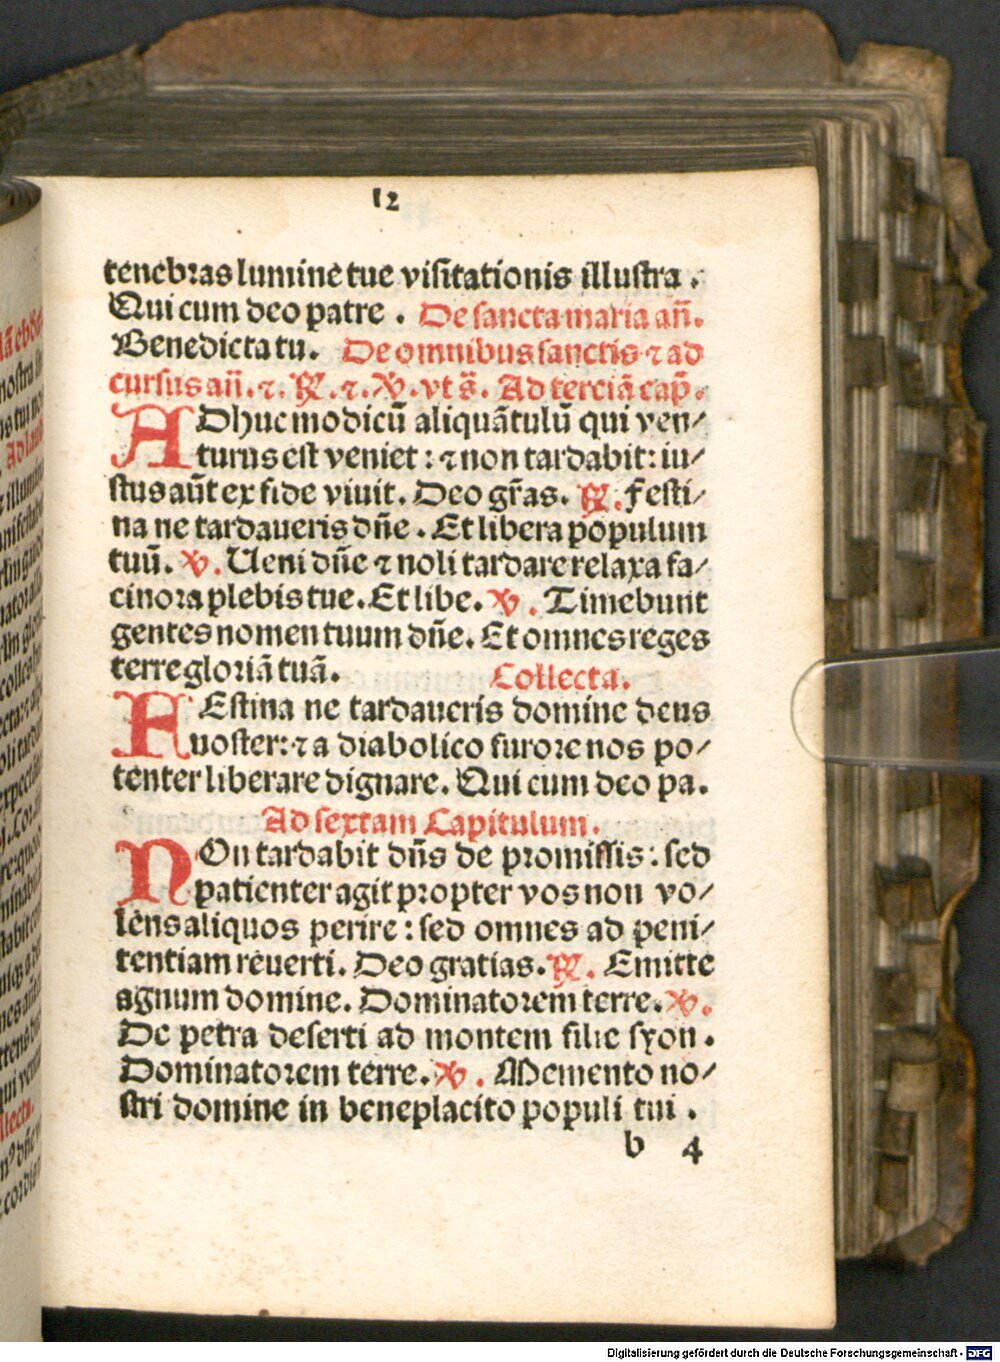 12
tenebras lumine tue visitationis illustra.
Qui cum deo patre. De sancta maria añ.
Benedicta tu. De omnibus sanctis ⁊ ad
cursus añ. ⁊. ℟. ⁊. ℣. vt s̄. Ad terciã cap̄.
ADhuc modicũ aliquãtulũ qui ven⸗
turus est veniet: ⁊ non tardabit: iu⸗
stus aũt ex fide viuit. Deo gr̃as. ℟. Festi⸗
na ne tardaueris dñe. Et libera populum
tuũ. ℣. Ueni dñe ⁊ noli tardare relaxa fa⸗
cinora plebis tue. Et libe. ℣. Timebunt
gentes nomen tuum dñe. Et omnes reges
terre gloriã tuã. Collecta.
FEstina ne tardaueris domine deus
noster: ⁊ a diabolico furore nos po⸗
tenter liberare dignare. Qui cum deo pa.
Ad sextam Capitulum.
NOn tardabit dñs de promissis: sed
patienter agit propter vos non vo⸗
lens aliquos perire: sed omnes ad peni⸗
tentiam reuerti. Deo gratias. ℟. Emitte
agnum domine. Dominatorem terre. ℣.
De petra deserti ad montem filie syon.
Dominatorem terre. ℣. Memento no⸗
stri domine in beneplacito populi tui.
b 4
Digitalisierung gefördert durch die Deutsche Forschungsgemeinschaft - DFG